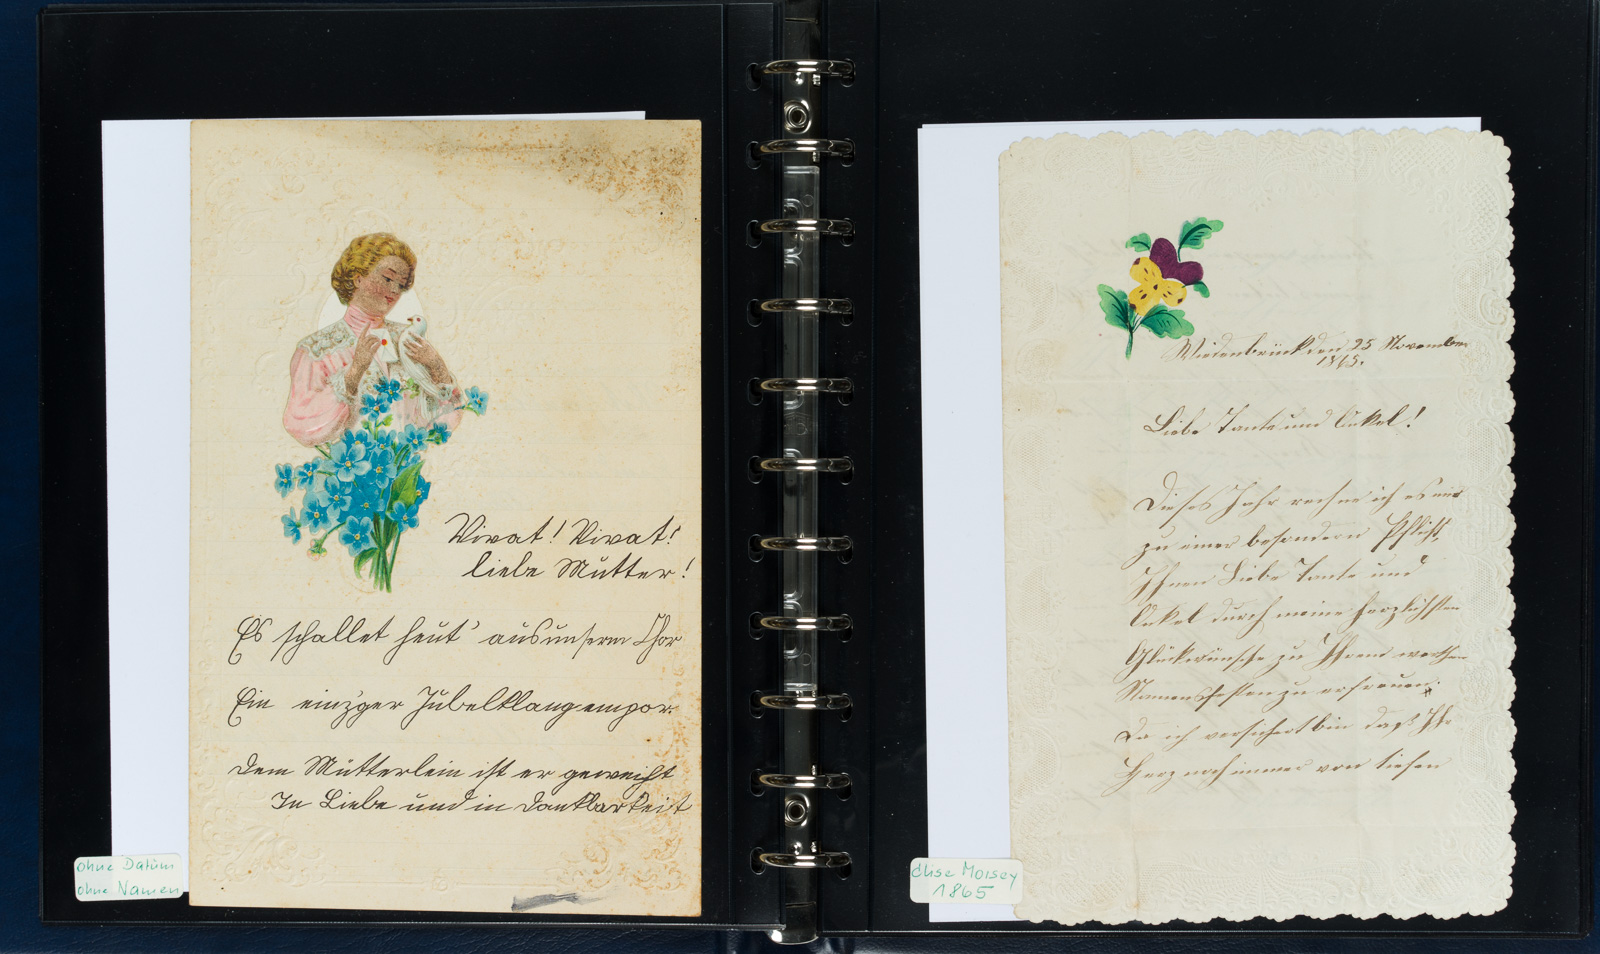 Vivat! Vivat!
liebe Mutter!
Es schallet heut' aus unserm Chor
Ein einz'ger Jubelklang empor.
Dem Mütterlein ist er geweiht
In Liebe und in Dankbarkeit
ohne Datum
ohne Namen
Wiedenbrück den 25 November
1865.
Liebe Tante und Onkel!
Dieses Jahr rechne ich es mir
zu einer besondern Pflicht,
Ihnen Liebe Tante und
Onkel durch meine herzlichsten
Glückwünsche zu Ihrem werthen
Namensfesten zu erfreuen.
Da ich versichert bin daß Ihr
Herz noch immer von tiefen
Elise Moisey
1865